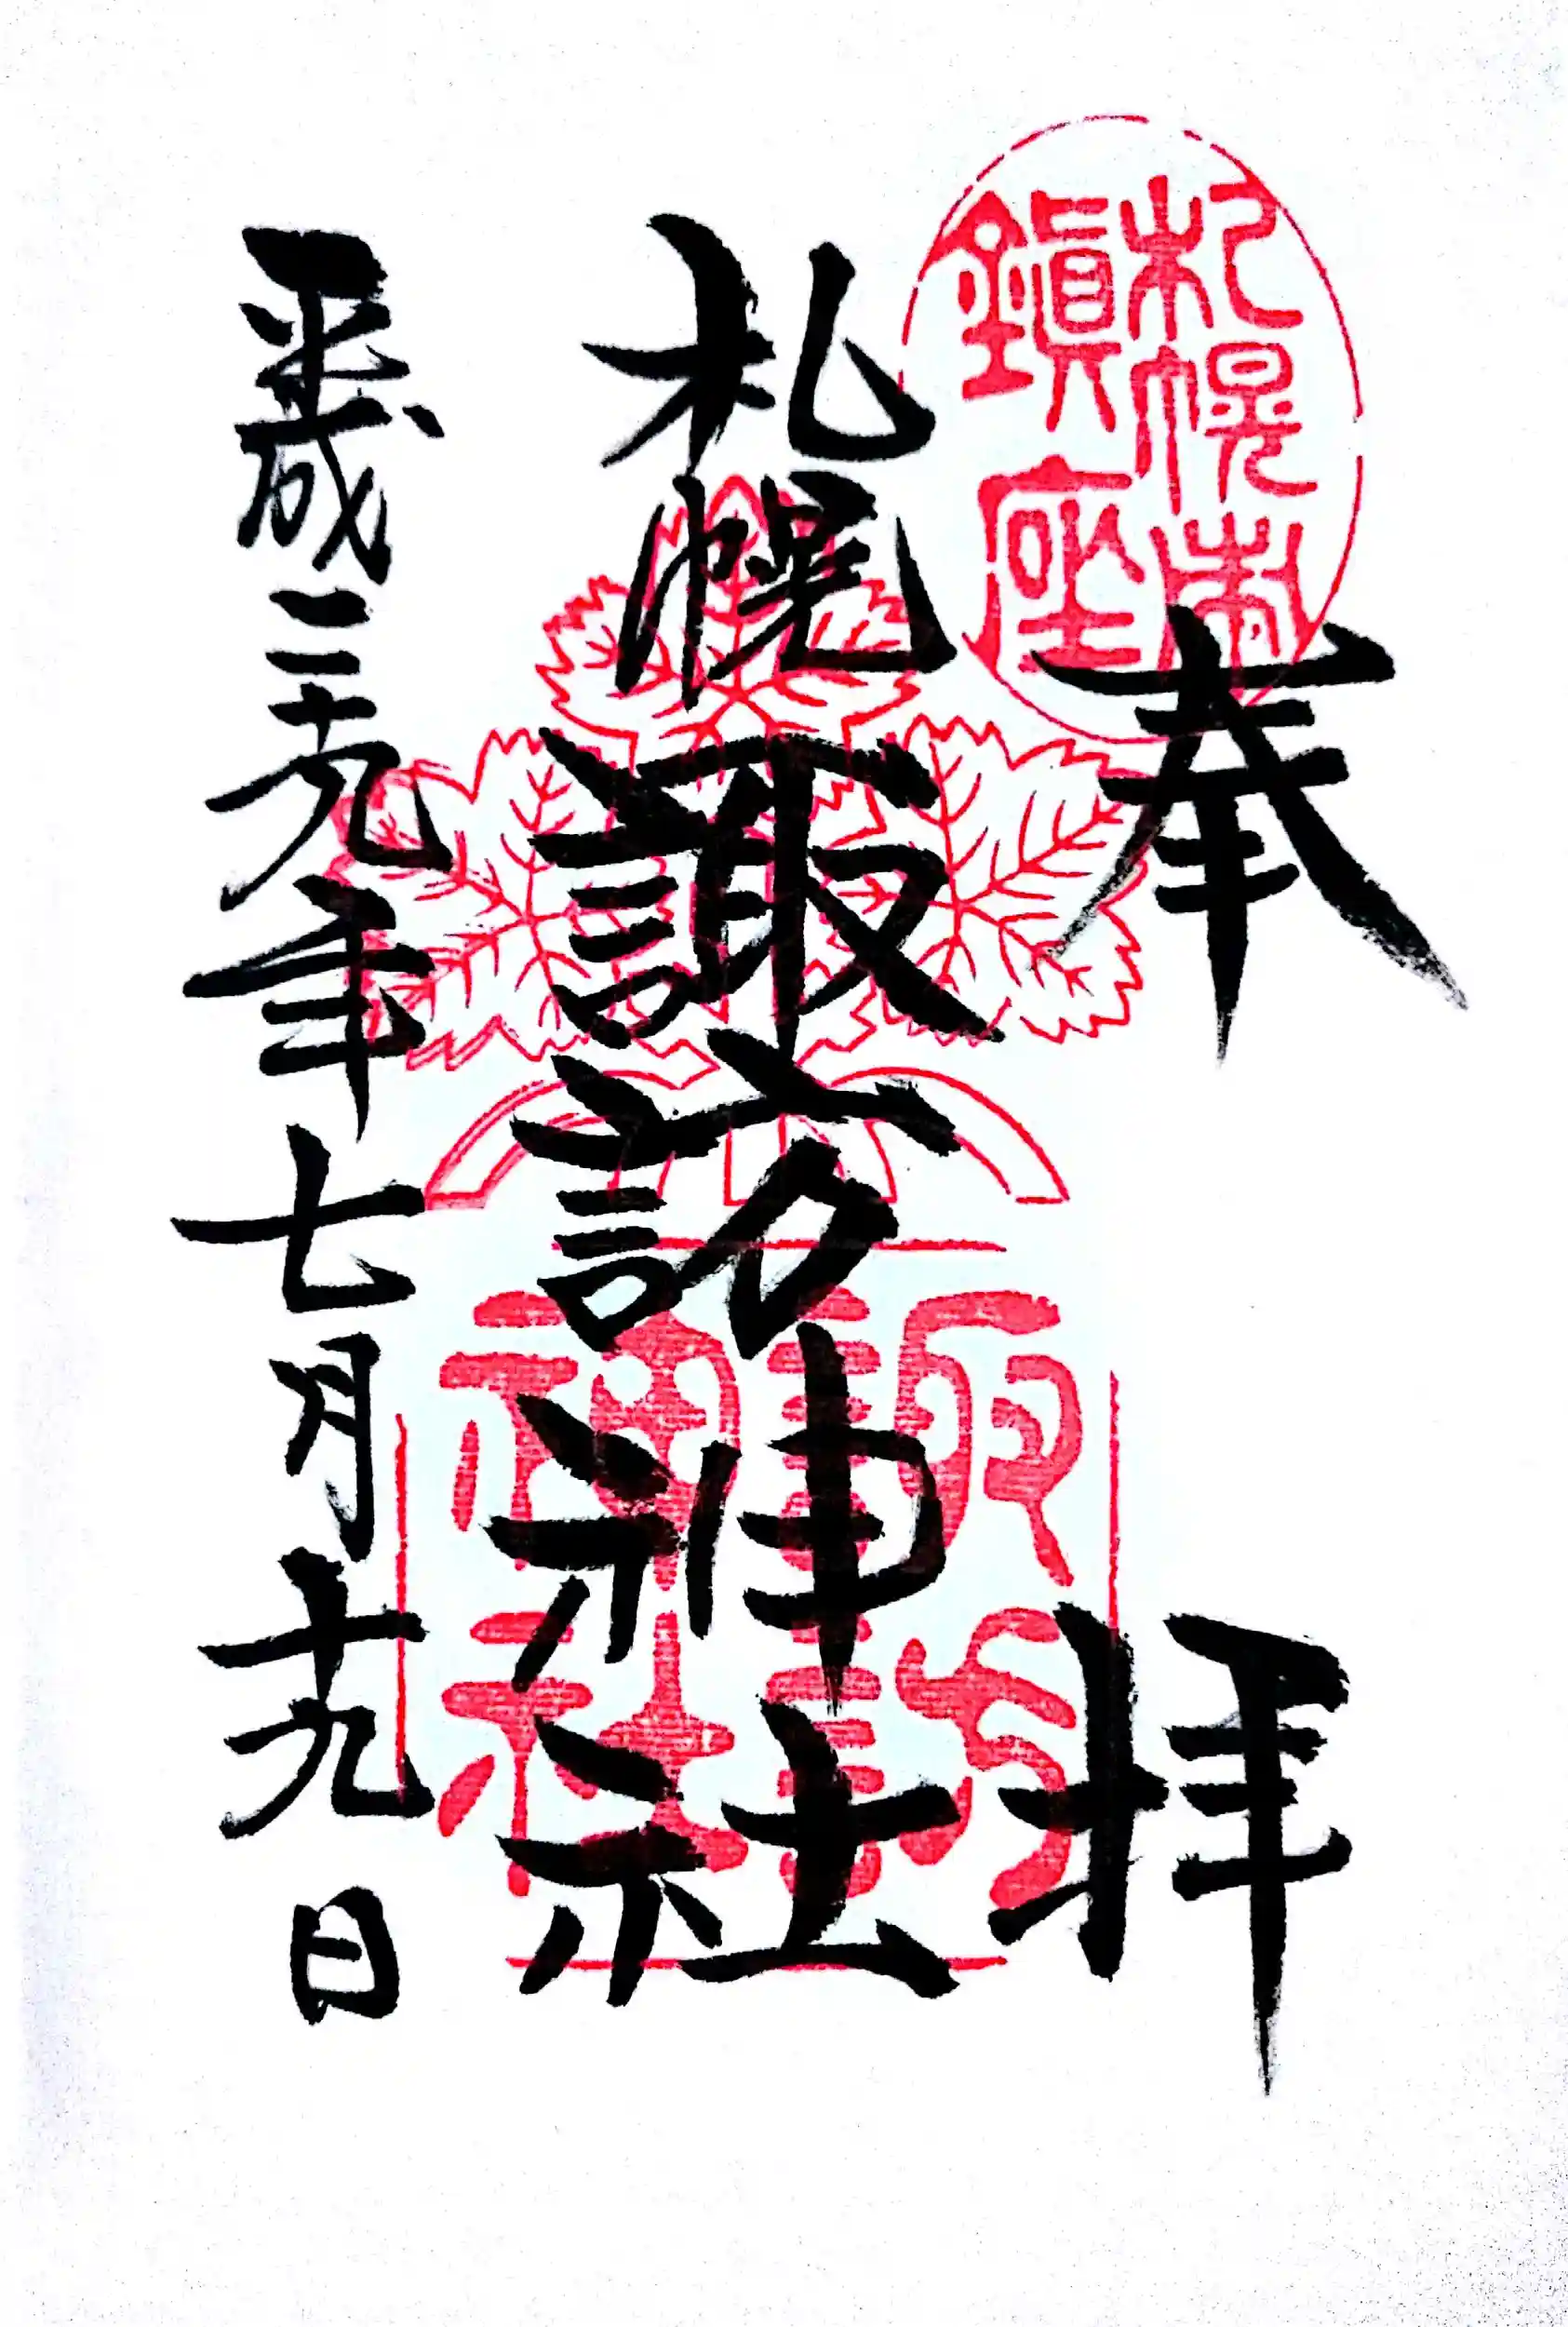 奉拝
札幌市
鎮座
札幌諏訪神社
諏訪
神社
平成二十九年七月十九日